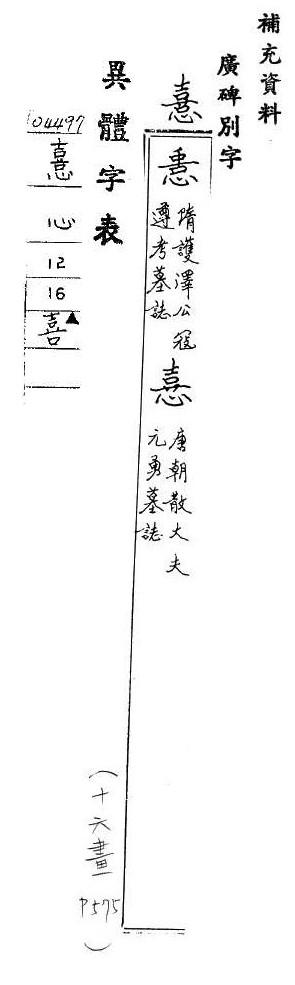 補充資料
廣碑別字
憙
憙
隋護澤公寇
遵考墓誌
憙
唐朝散大夫
元勇墓誌
(十六畫 P575)
異體字表
04497
憙
心
12
16
喜▲